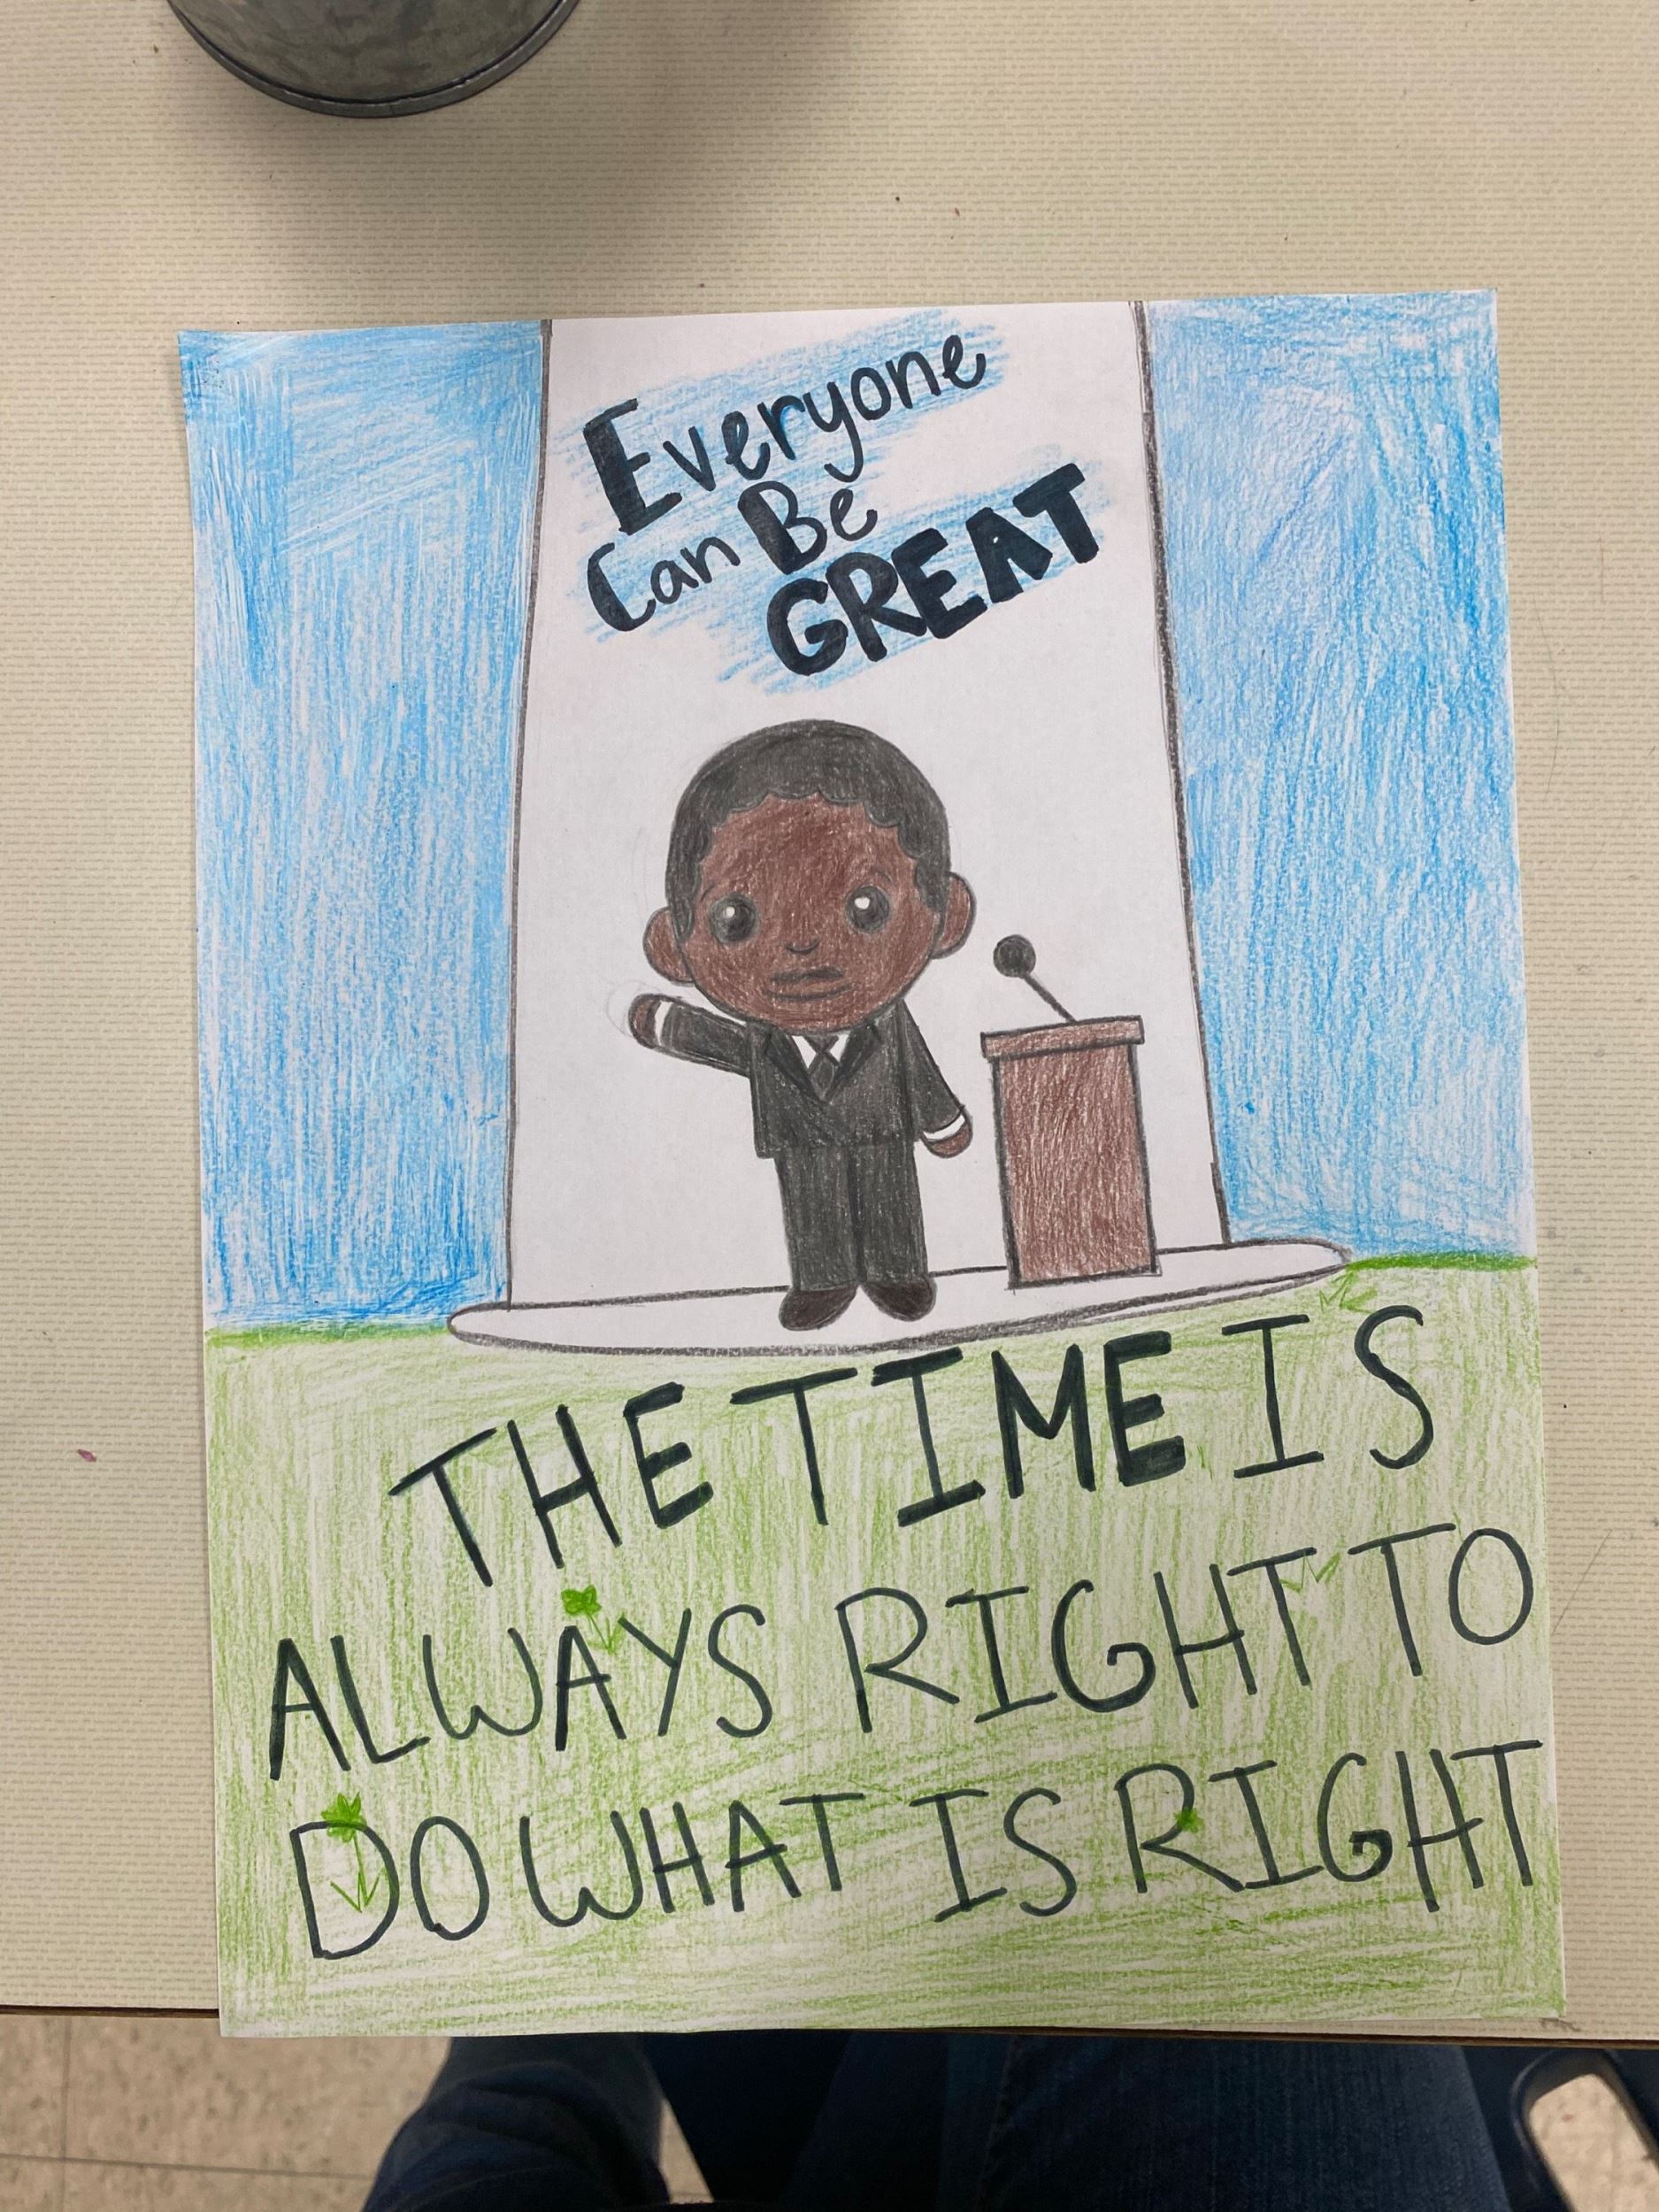 Everyone
Can Be
GREAT
THE TIME IS
ALWAYS RIGHT TO
DO WHAT IS RIGHT